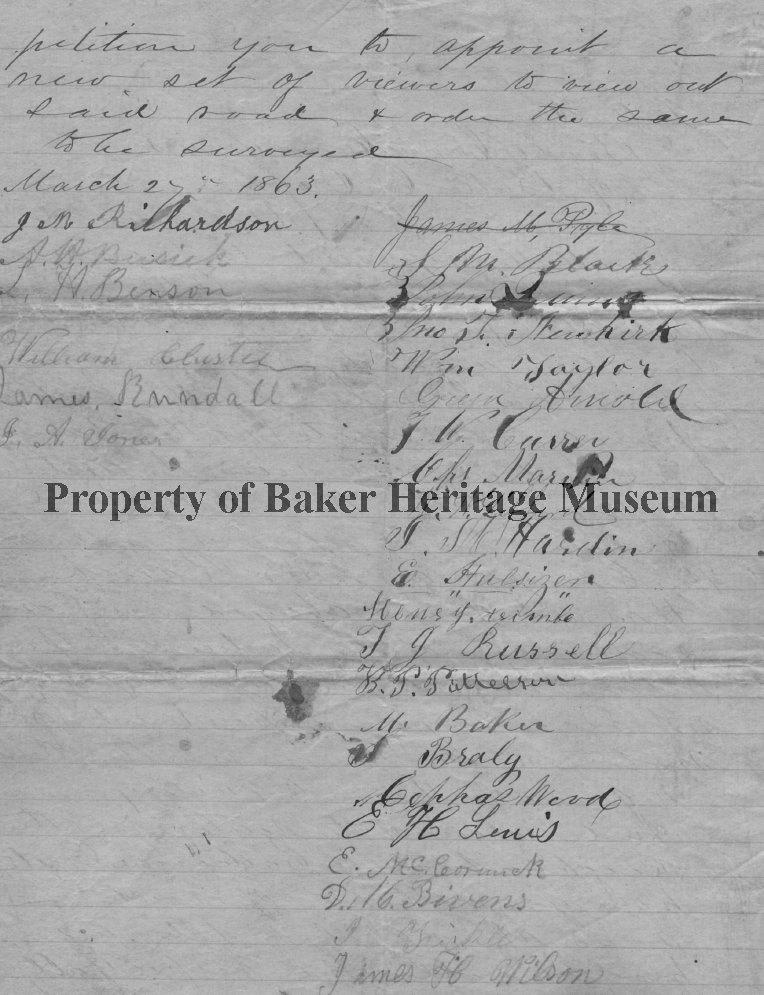 petition you to appoint a
new set of viewers to view out
said road & order the same
to be surveyed
March 27th 1863.
J M Richardson
A. H. Busick
H. Benson
William
James Rundall
F. A. Jones
James M, Pyle
M. Black
John
Jno S. Newkirk
Wm Taylor
Green Arnold
J. W. Currer
Martin
Property of Baker Heritage Museum
Hardin
E. Hulsizer
T J Russell
B. P. Patterson
M. Baker
Braly
Cephas Wood
E H Lewis
E. McCormick
D. H. Bivens
James H Wilson